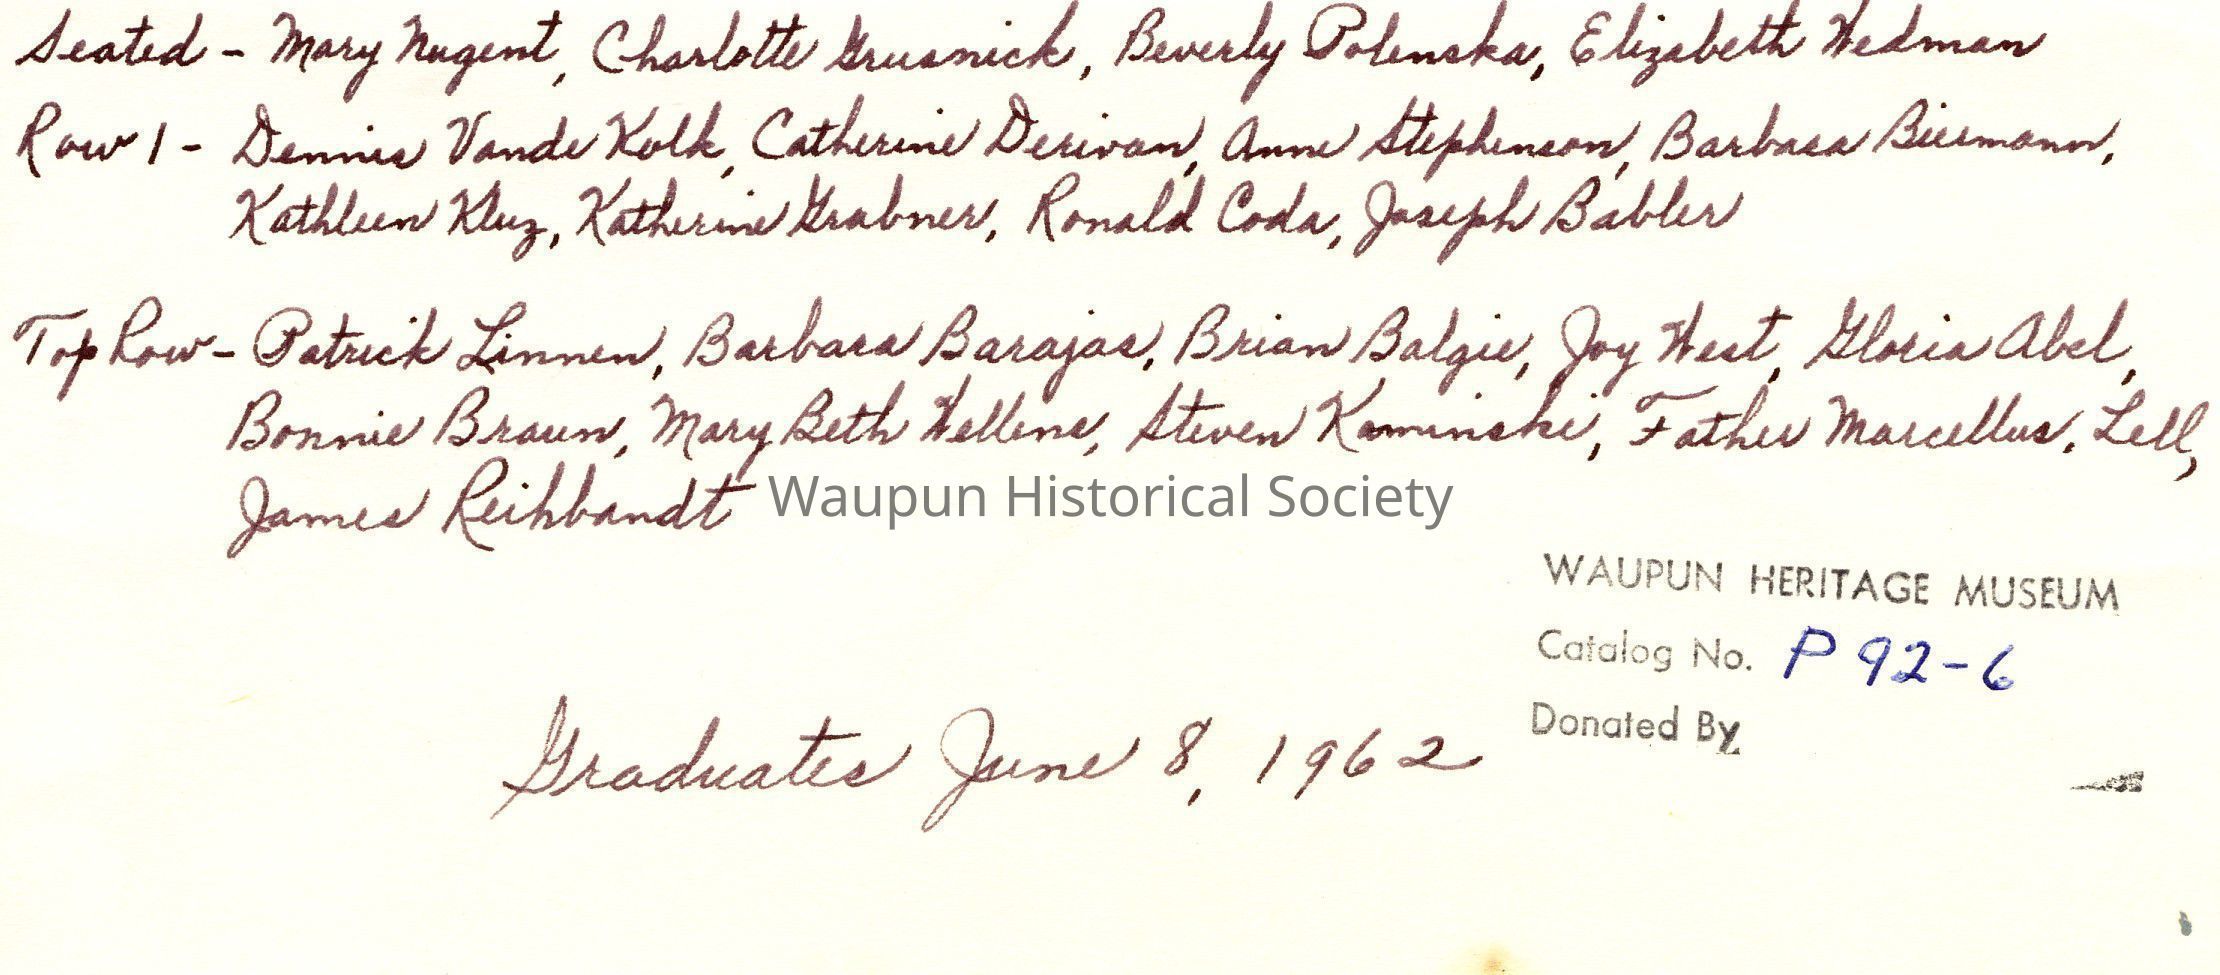 Seated - Mary Nugent, Charlotte Grusnick, Beverly Polenska, Elizabeth Wedman
Row 1 - Dennis Vande Kolk, Catherine Derivan, Anne Stephenson, Barbara Biermann,
Kathleen Kluz, Katherine Grabner, Ronald Coda, Joseph Babler
Top Row - Patrick Linnen, Barbara Barajas, Brian Balgie, Joy West, Gloria Abel,
Bonnie Braun, Mary Beth Wellens, Steven Kaminski, Father Marcellus, Lell,
James Reihbandt
Waupun Historical Society
WAUPUN HERITAGE MUSEUM
Catalog No. P 92-6
Donated By
Graduates June 8, 1962